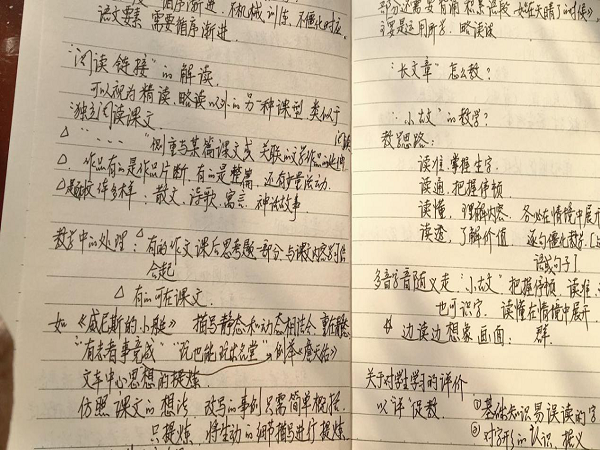 循序渐进，不机械训练，不僵化对应。
语文要素 需要循序渐进。
"阅读链接"的解读。
可以视为精读、略读以外的另一种课型，类似于
独立阅读课文
△"……"侧重与某篇课文或 关联的文学作品的延伸 阅读
△、作品有的是作品片断，有的是整篇，还有少量活动。
△ 体多样：散文、诗歌、寓言、神话故事
教学中的处理：△有的作文课后思考题一部分，与课文内容
合起
△有的可在课文
如《威尼斯的小艇》 描写静态和动态相结合，重在静态
"有志者事竟成" "玩也能玩出名堂"
文章中心思想的提炼
仿照课文的想法，改写的事例只需简单概括，
只提炼，将生动的细节描写进行提炼
部分还需要有
主要是运用所学，略读课
"长文章"怎么教？
"小古文"的教学？
教学思路：
读准，掌握生字，
读通，把握停顿
读懂，理解内容，务必在情境中展开
读透，了解价值，逐句僵化教学。
语或句子】
多音字音随义走。"小古文"把握停顿，读准
也可识字，读懂在情境中展开
边读边想象画面：群
关于对学生学习的评价
以"评"促教 ①基础知识易误读的字
②对字形的认识，